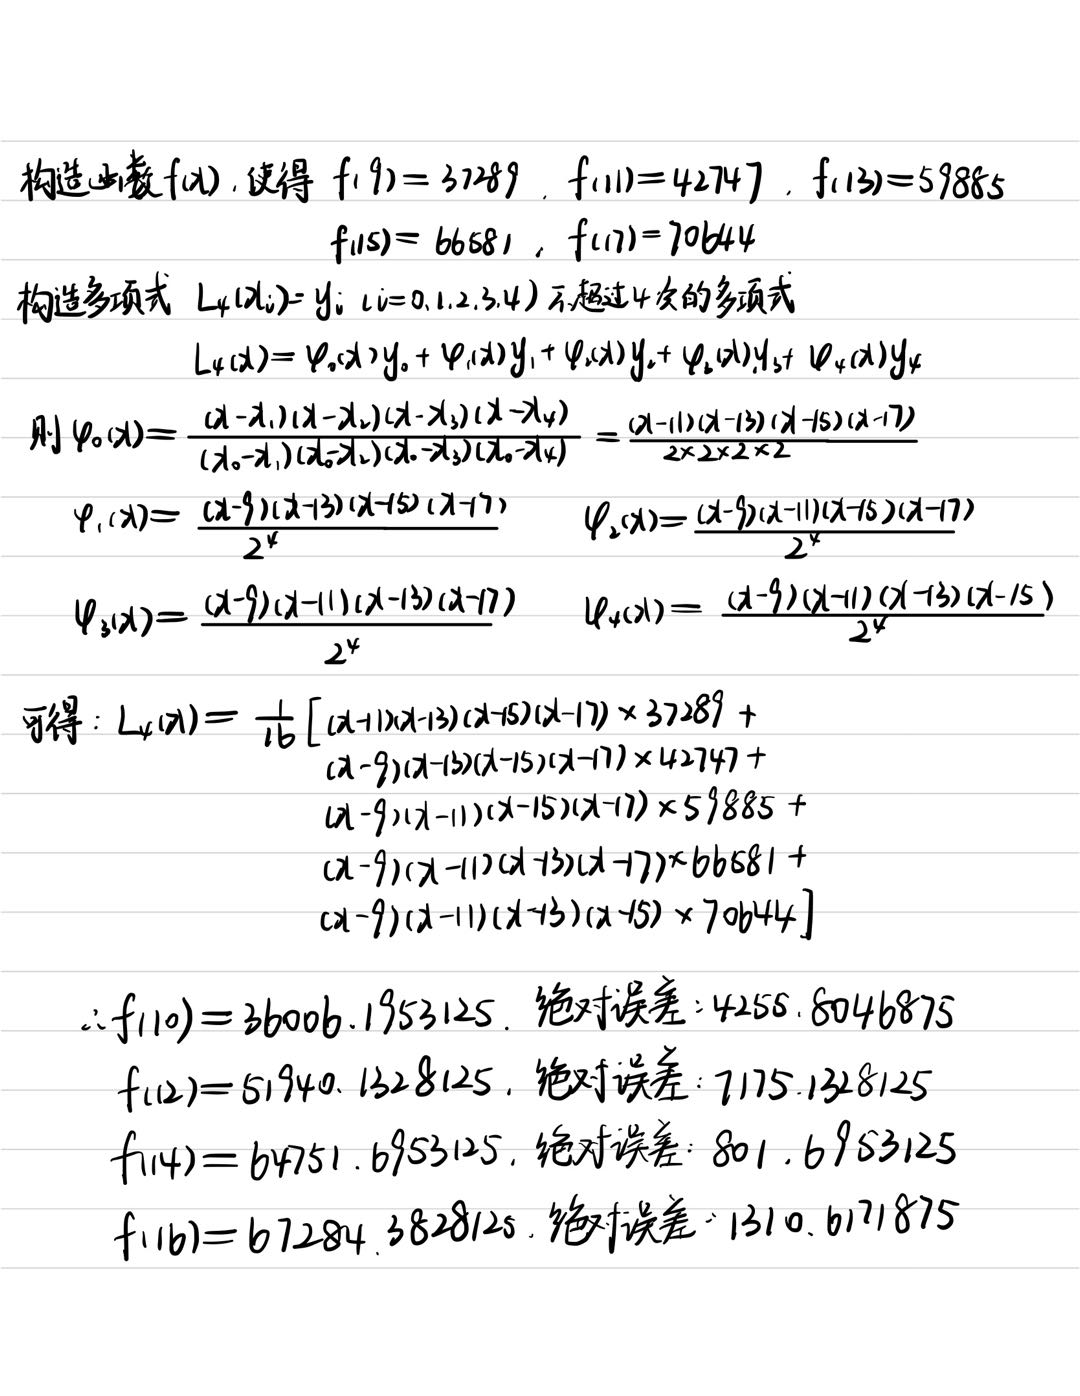 构造函数f(x),使得 f(9)=37289, f(11)=42747, f(13)=59885
f(15)=66581, f(17)=70644
构造多项式 L₄(xᵢ)=yᵢ (i=0.1.2.3.4)不超过4次的多项式
L₄(x)=φ₀(x)y₀+φ₁(x)y₁+φ₂(x)y₂+φ₃(x)y₃+φ₄(x)y₄
则φ₀(x)=(x-x₁)(x-x₂)(x-x₃)(x-x₄)/(x₀-x₁)(x₀-x₂)(x₀-x₃)(x₀-x₄)=(x-11)(x-13)(x-15)(x-17)/2×2×2×2
φ₁(x)=(x-9)(x-13)(x-15)(x-17)/2⁴ φ₂(x)=(x-9)(x-11)(x-15)(x-17)/2⁴
φ₃(x)=(x-9)(x-11)(x-13)(x-17)/2⁴ φ₄(x)=(x-9)(x-11)(x-13)(x-15)/2⁴
可得: L₄(x)=1/16[(x-11)(x-13)(x-15)(x-17)×37289+
(x-9)(x-13)(x-15)(x-17)×42747+
(x-9)(x-11)(x-15)(x-17)×59885+
(x-9)(x-11)(x-13)(x-17)×66581+
(x-9)(x-11)(x-13)(x-15)×70644]
∴f(10)=36006.1953125. 绝对误差:4255.8046875
f(12)=51940.1328125, 绝对误差:7175.1328125
f(14)=64751.6953125, 绝对误差:801.6953125
f(16)=67284.3828125, 绝对误差:1310.6171875